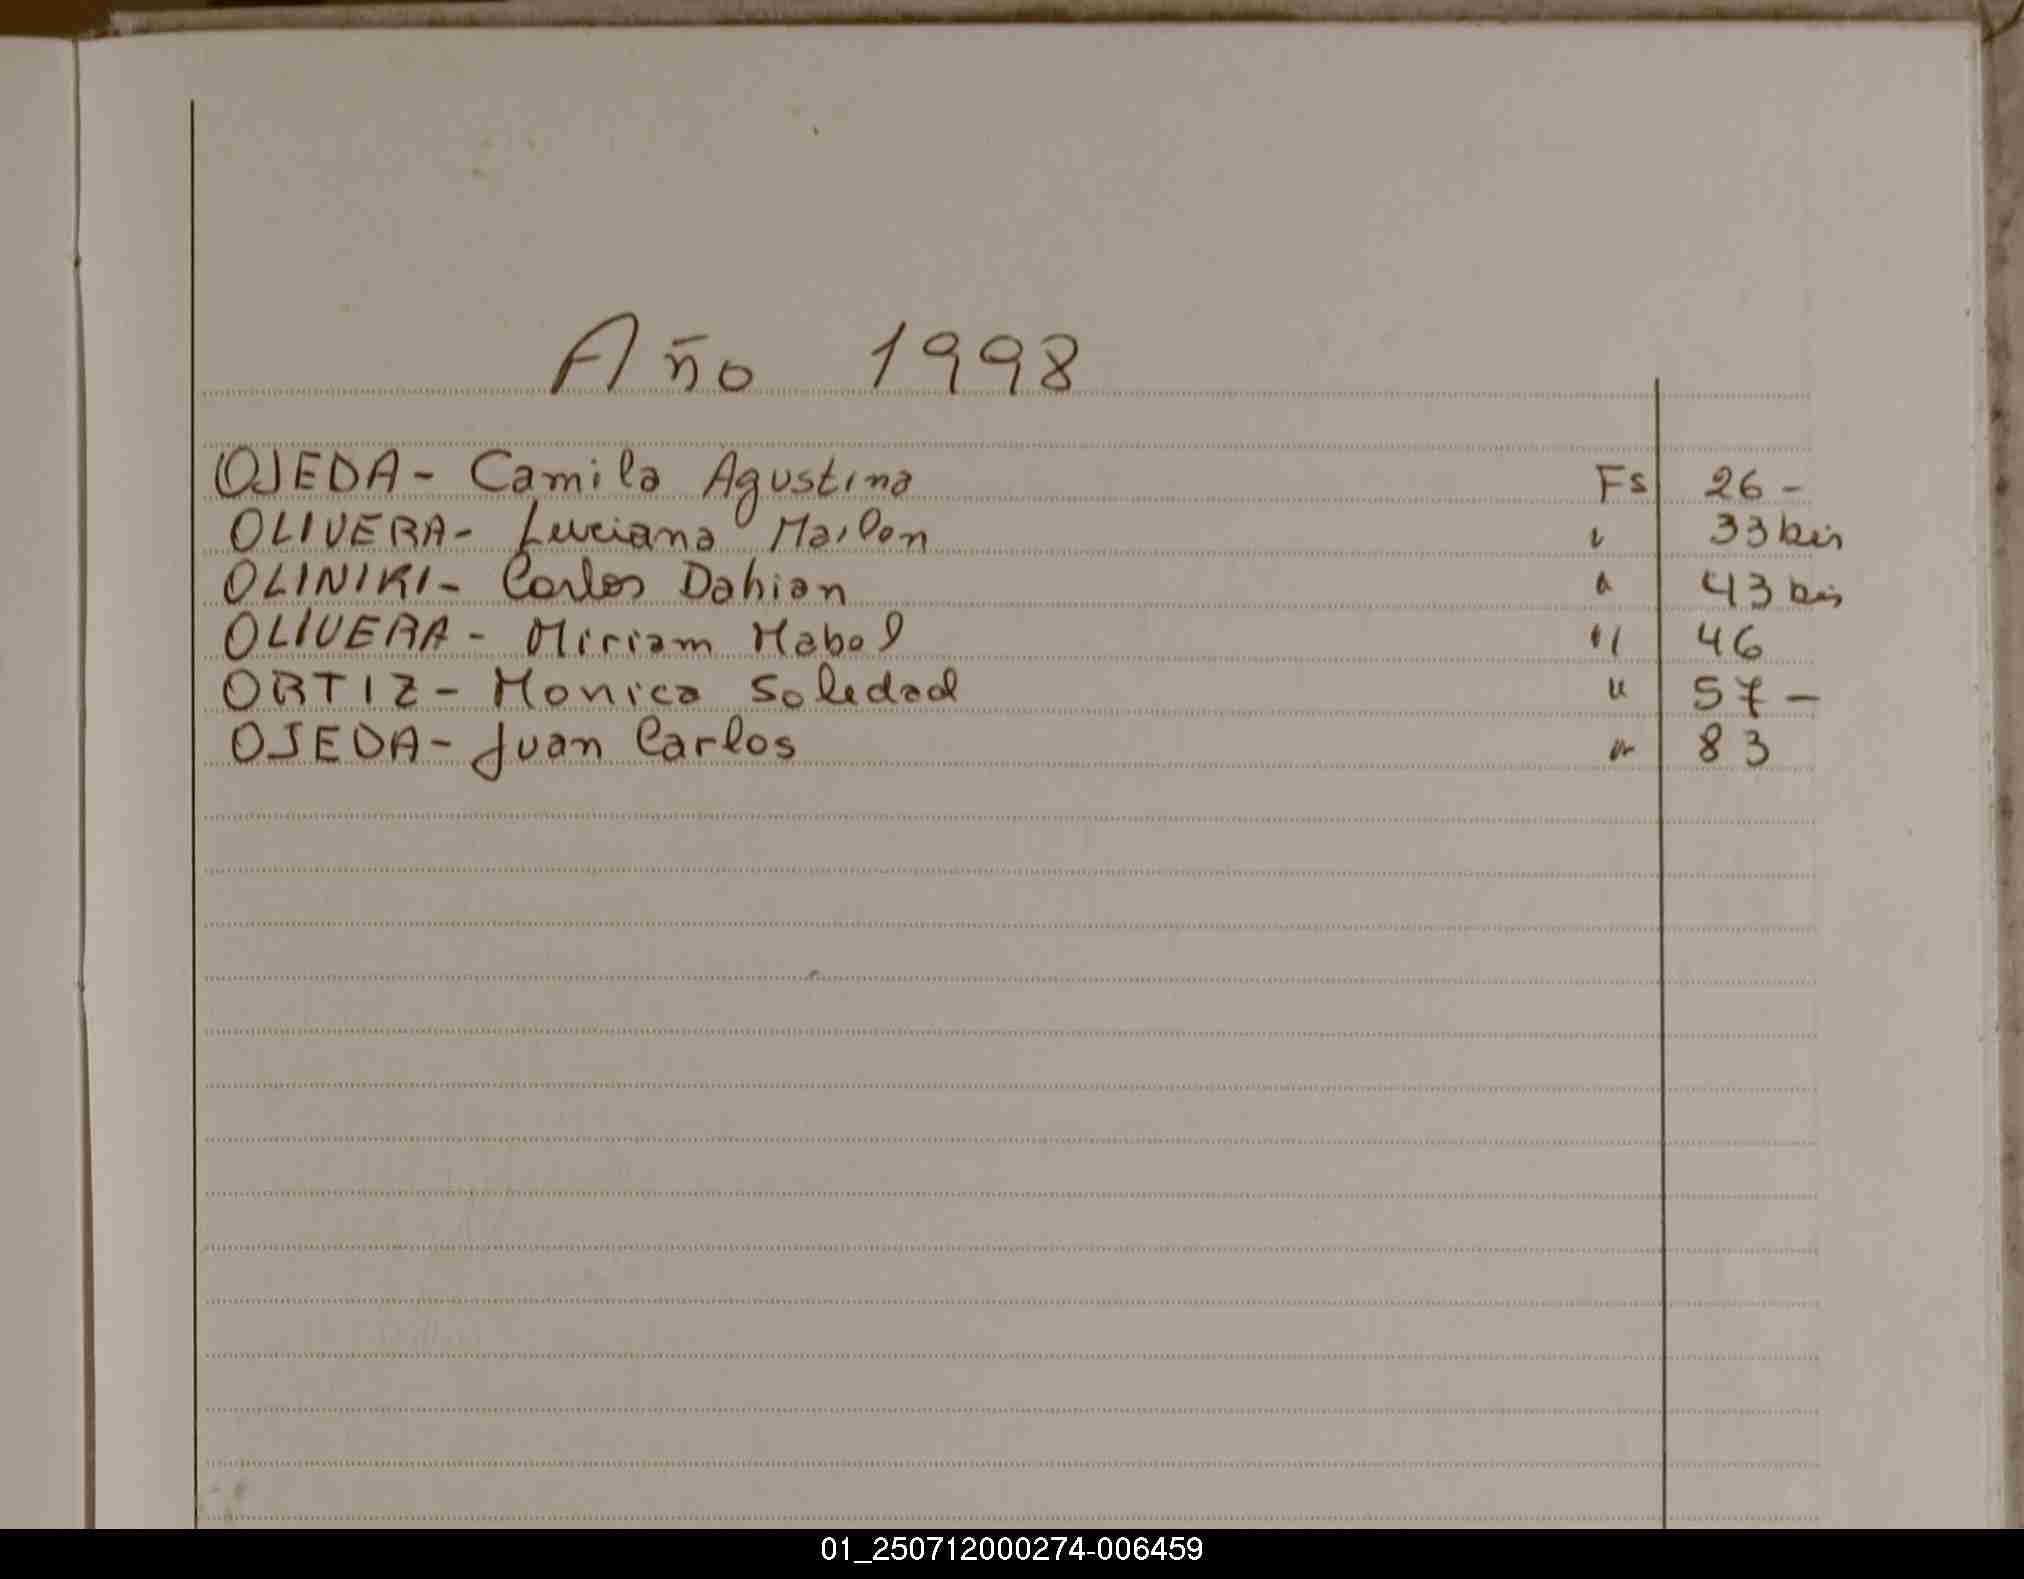 Año 1998
OJEDA - Camila Agustina Fs 26 -
OLIVERA - Luciana Mailen " 33 bis
OLINIKI - Carlos Dahian " 43 bis
OLIVERA - Miriam Mabel " 46
ORTIZ - Monica Soledad " 57 -
OJEDA - Juan Carlos " 83
01_250712000274-006459